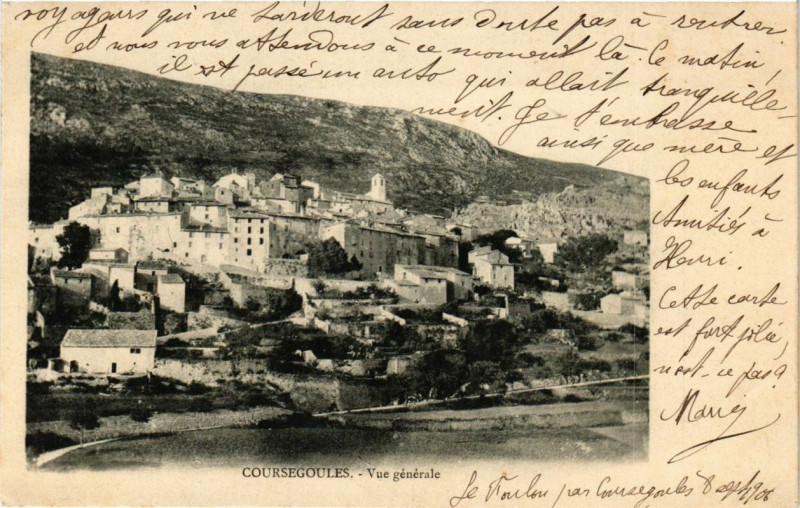 voyageurs qui ne tarderont sans doute pas à rentrer.
et nous vous attendons à ce moment là. Ce matin,
il est passé un auto qui allait tranquille-
ment. Je t'embrasse
ainsi que mère et
les enfants
Amitiés à
Henri.
Cette carte
est fort jolie,
n'est-ce pas?
Marie
COURSEGOULES. - Vue générale
Le Foulon par Coursegoules 8 sept 1906